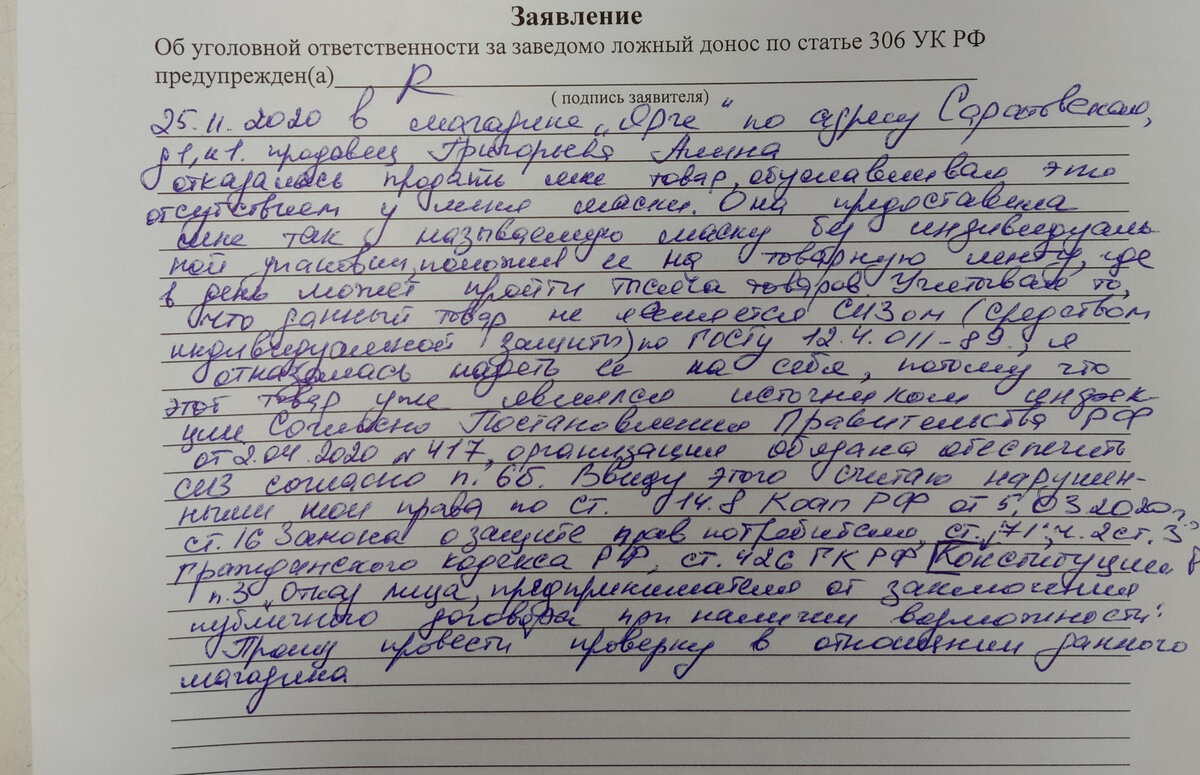 Заявление
Об уголовной ответственности за заведомо ложный донос по статье 306 УК РФ
предупрежден(а)
( подпись заявителя)
25.11.2020 в магазине „Ярче" по адресу Саратовская,
д1, к1. продавец Григорьева Алина
отказалась продать мне товар, обуславливая это
отсутствием у меня маски. Она предоставила
мне так называемую маску без индивидуаль-
ной упаковки, положив ее на товарную ленту, где
в день может пройти тысяча товаров Учитывая то,
что данный товар не является СИЗом (средством
индивидуальной защиты) по ГОСТу 12.4.011-89., я
отказалась надеть ее на себя, потому что
этот товар уже являлся источником инфек-
ции Согласно Постановления Правительства РФ
от 2.04.2020 № 417, организация обязана обеспечить
СИЗ согласно п. 6б. Ввиду этого считаю нарушен-
ными мои права по ст. 14.8 Коап РФ от 5.03.2020г.
ст. 16 Закона о защите прав потребителя, ст. 71, ч. 2 ст. 3
Гражданского кодекса РФ, ст. 426 ГК РФ Конституции
п.3 „Отказ лица, предпринимателя от заключения
публичного договора при наличии возможности".
Прошу провести проверку в отношении данного
магазина